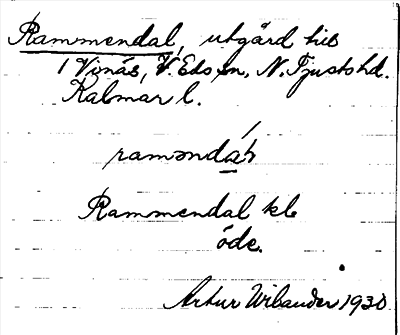 Rammendal, utgård his
1 Vinäs, V. Eds sn, N. Tjusts hd.
Kalmar l.
ramənda̱ʹɫ
Rammendal kb
öde.
Artur Wibander 1930